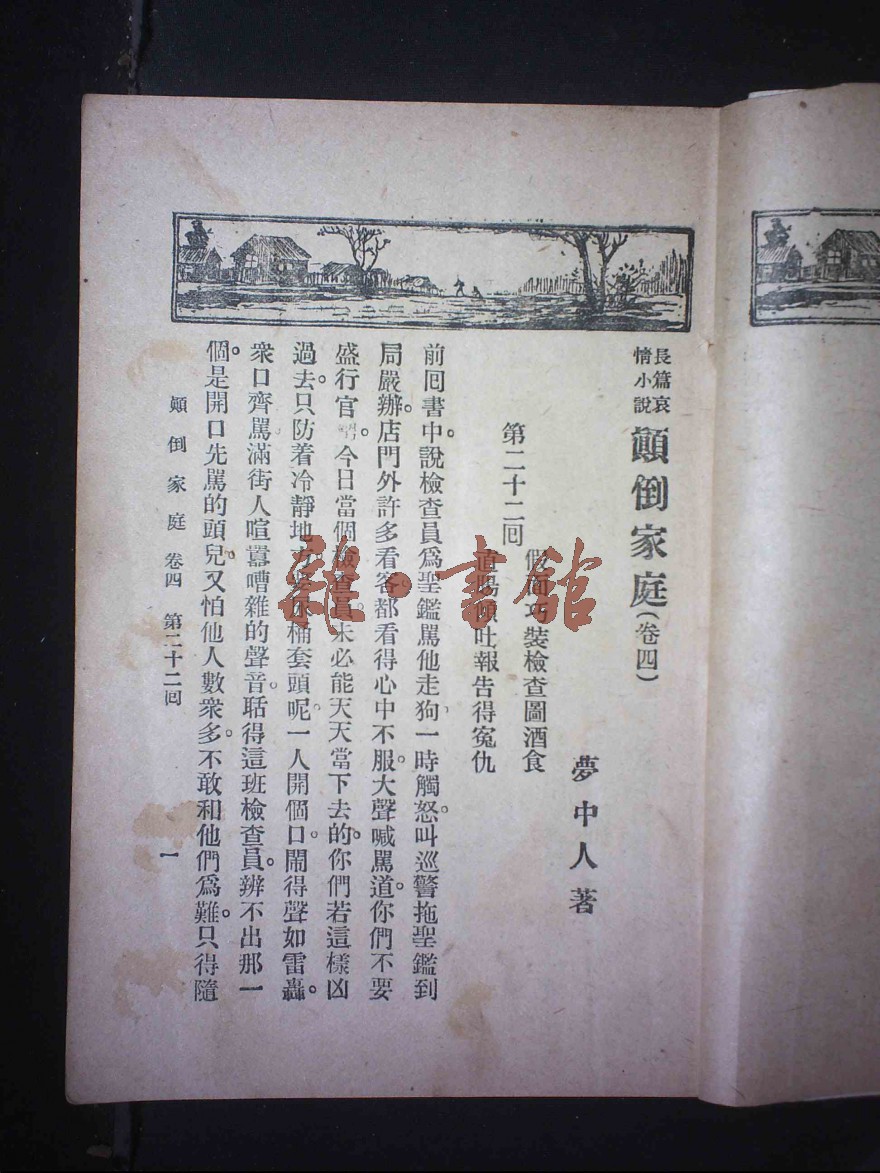 長篇哀
情小說
顚倒家庭(卷四)
夢中人著
第二十二回
假面巧裝檢查圖酒食
直腸傾吐報告得寃仇
前回書中。說檢查員爲聖鑑罵他走狗。一時觸怒。叫巡警拖聖鑑到
局嚴辦。店門外許多看客。都看得心中不服。大聲喊罵道。你們不要
盛行官。今日當個檢查員。未必能天天當下去的。你們若這樣凶
過去。只防着冷靜地方。桶套頭呢。一人開個口。鬧得聲如雷轟。
衆口齊罵。滿街人喧囂嘈雜的聲音。聒得這班檢查員。辨不出那一
個。是開口先罵的頭兒。又怕他人數衆多。不敢和他們爲難。只得隨
顚倒家庭 卷四 第二十二回
一
雜·書館